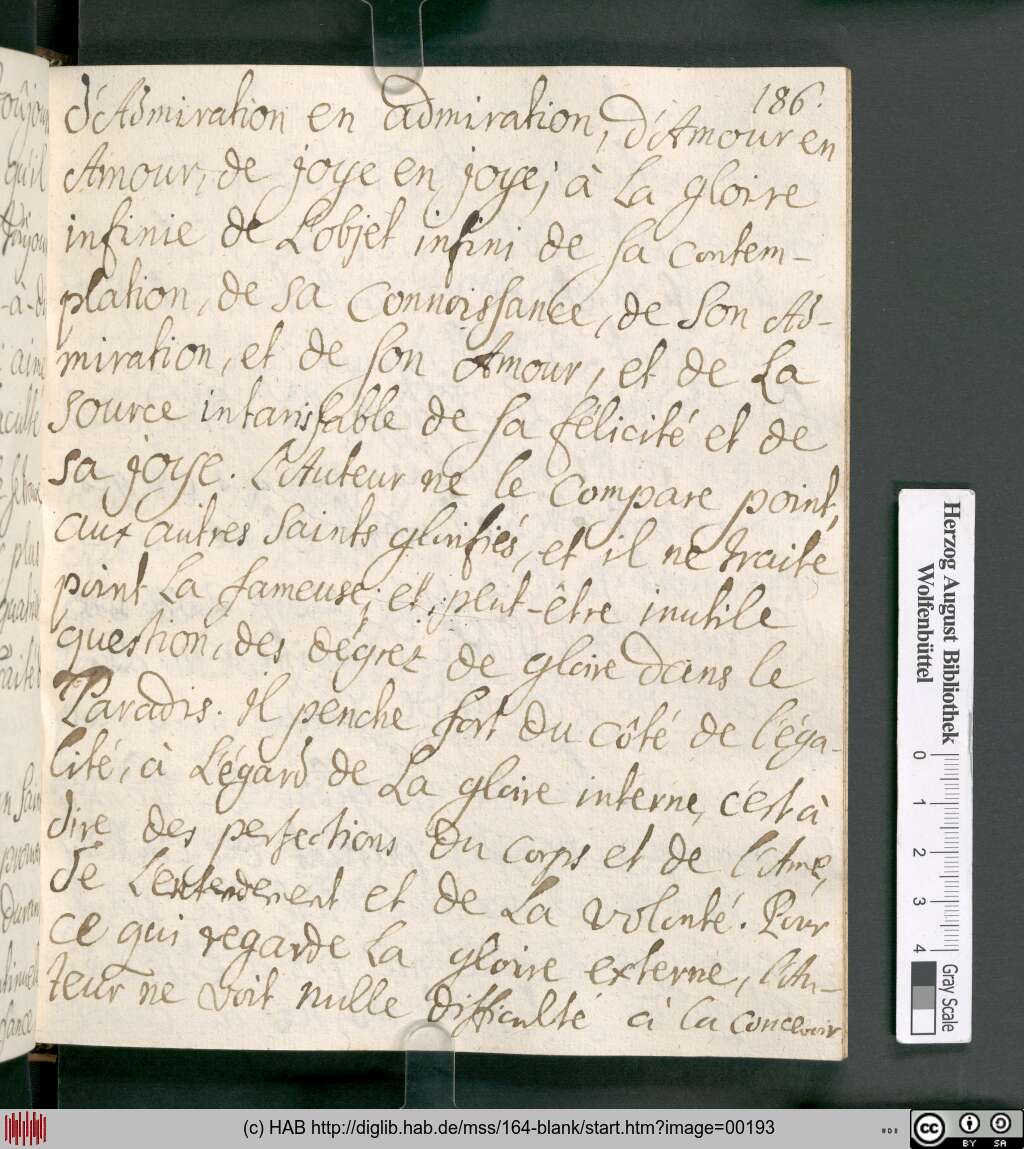 186.
d'Admiration en admiration, d'Amour en
Amour, de joye en joye; à La gloire
infinie de L'objet infini de sa contem-
plation, de sa connoissance, de son Ad-
miration, et de son Amour, et de La
source intarissable de sa félicité et de
sa joye. L'Auteur ne le compare point,
aux autres saints glorifiés, et il ne traite
point La fameuse, et, peut-être inutile
question, des dégrez de gloire dans le
Paradis. Il penche fort du côté de l'éga-
lité, à L'égard de La gloire interne, c'est à
dire des perfections du corps et de l'Ame,
de L'entendement et de La volonté. Pour
ce qui regarde La gloire externe, l'Au-
teur ne voit nulle difficulté à la concevoir
qu'il
-à-
aime
plus
Herzog August Bibliothek
Wolfenbüttel
0 1 2 3 4
Gray Scale
(c) HAB http://diglib.hab.de/mss/164-blank/start.htm?image=00193
cc BY SA